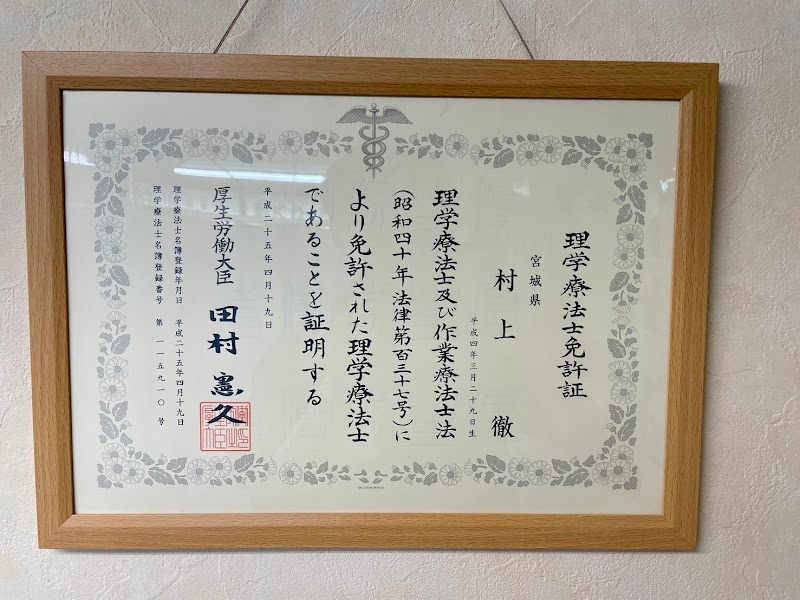 理学療法士免許証
宮城県
村上 徹
平成四年三月二十九日生
理学療法士及び作業療法士法
(昭和四十年法律第百三十七号)に
より免許された理学療法士
であることを証明する
平成二十五年四月十九日
厚生労働大臣 田村 憲久
理学療法士名簿登録年月日 平成二十五年四月十九日
理学療法士名簿登録番号 第 一一五九一〇 号